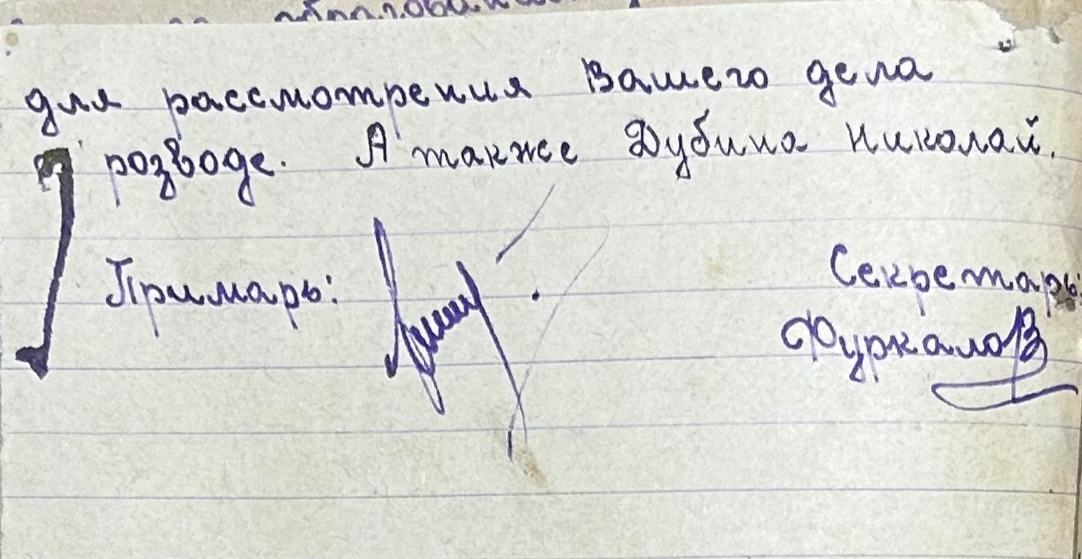 для рассмотрения Вашего дела
розводе. А также Дубина Николай.
Примарь:
Секретарь
Фуркалов